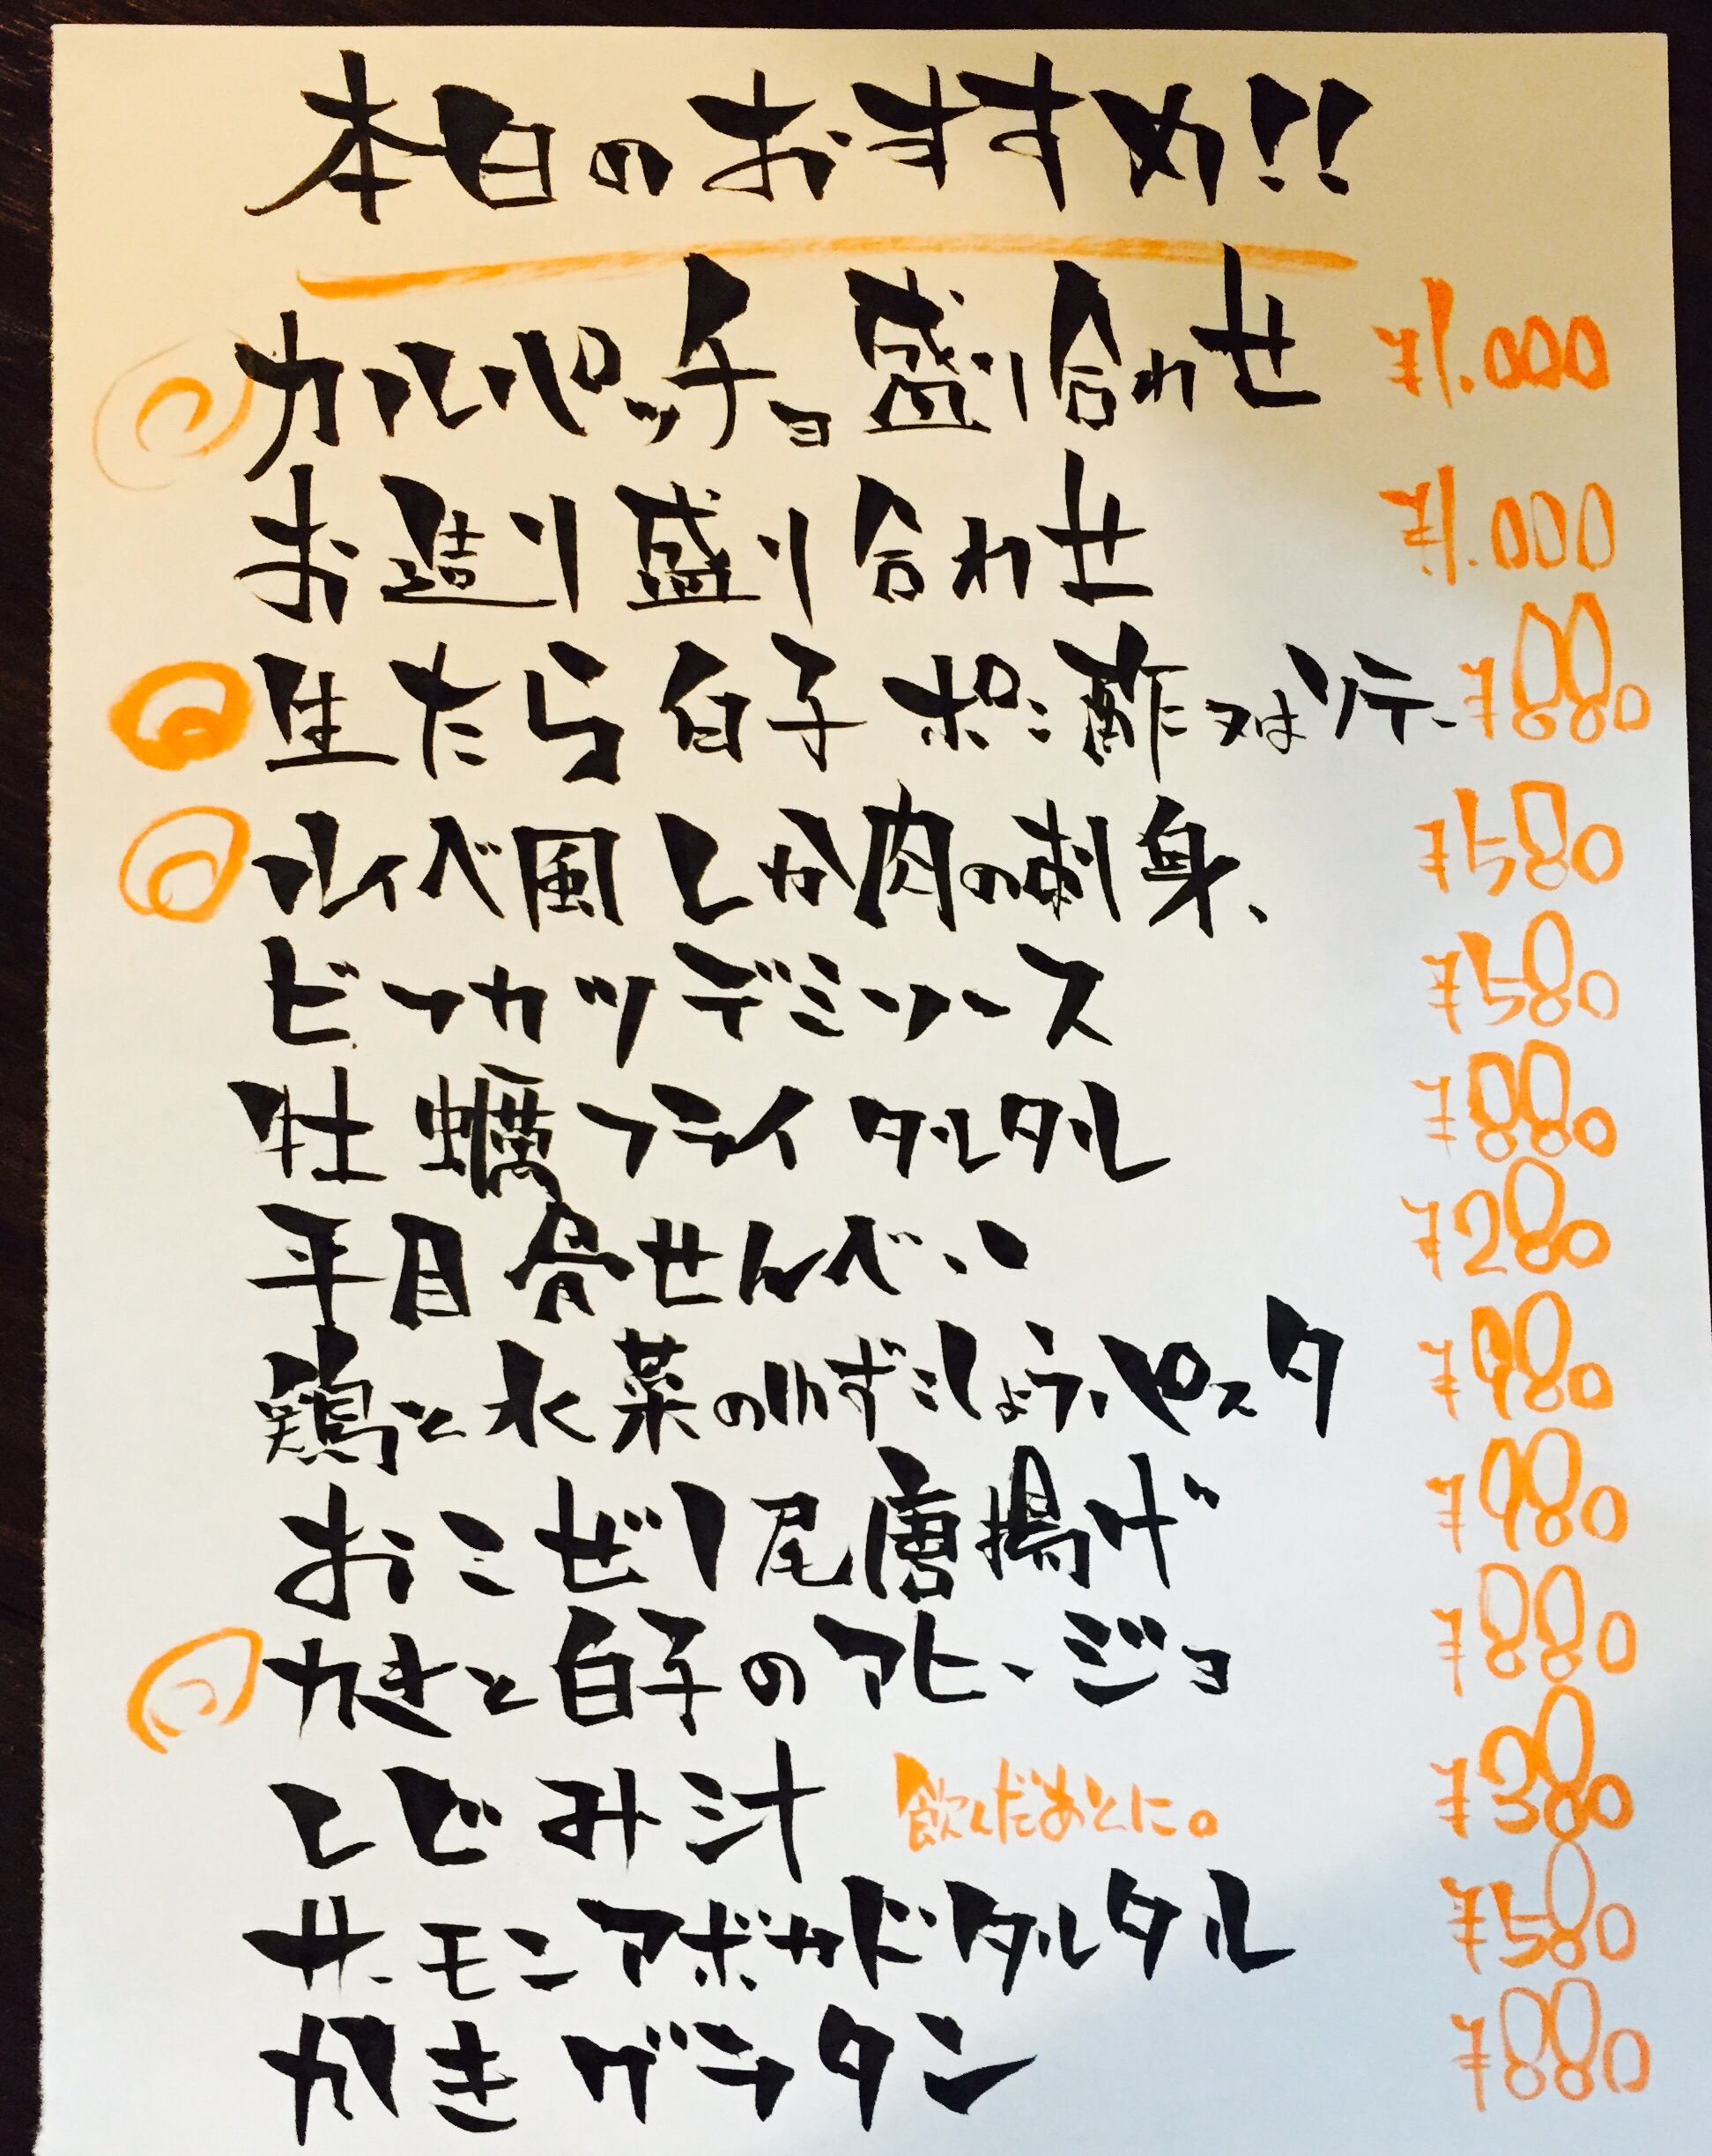 本日のおすすめ!!
カルパッチョ盛り合わせ ¥1.000
お造り盛り合わせ ¥1.000
生たら白子ポン酢又はソテー ¥880
ルイベ風しか肉の刺身、 ¥580
ビーフカツデミソース ¥580
牡蠣フライタルタル ¥880
平目骨せんべい ¥280
鶏と水菜のゆずこしょうパスタ ¥980
おこぜ1尾唐揚げ ¥980
かきと白子のアヒージョ ¥880
しじみ汁 飲んだあとに。 ¥380
サーモンアボカドタルタル ¥580
かきグラタン ¥880